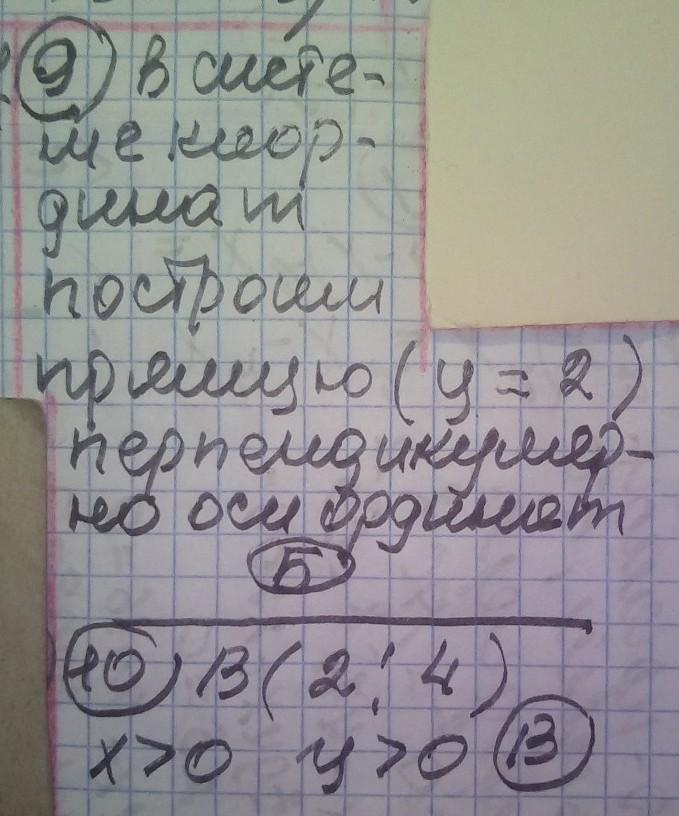 9) в систе-
ме коор-
динат
построим
прямую (y = 2)
перпендикуляр-
но оси ординат
Б
10) B(2; 4)
x>0 y>0 В